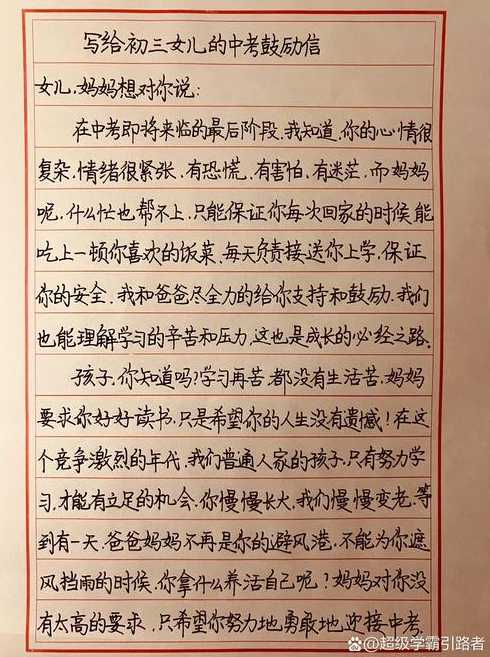 写给初三女儿的中考鼓励信
女儿,妈妈想对你说:
在中考即将来临的最后阶段,我知道,你的心情很
复杂,情绪很紧张,有恐慌,有害怕,有迷茫,而妈妈
呢,什么忙也帮不上,只能保证你每次回家的时候能
吃上一顿你喜欢的饭菜,每天负责接送你上学,保证
你的安全,我和爸爸尽全力的给你支持和鼓励,我们
也能理解学习的辛苦和压力,这也是成长的必经之路。
孩子,你知道吗?学习再苦,都没有生活苦,妈妈
要求你好好读书,只是希望你的人生没有遗憾!在这
个竞争激烈的年代,我们普通人家的孩子,只有努力学
习,才能有立足的机会,你慢慢长大,我们慢慢变老,等
到有一天,爸爸妈妈不再是你的避风港,不能为你遮
风挡雨的时候,你拿什么养活自己呢?妈妈对你没
有太高的要求,只希望你努力地,勇敢地,迎接中考,
@超级学霸引路者